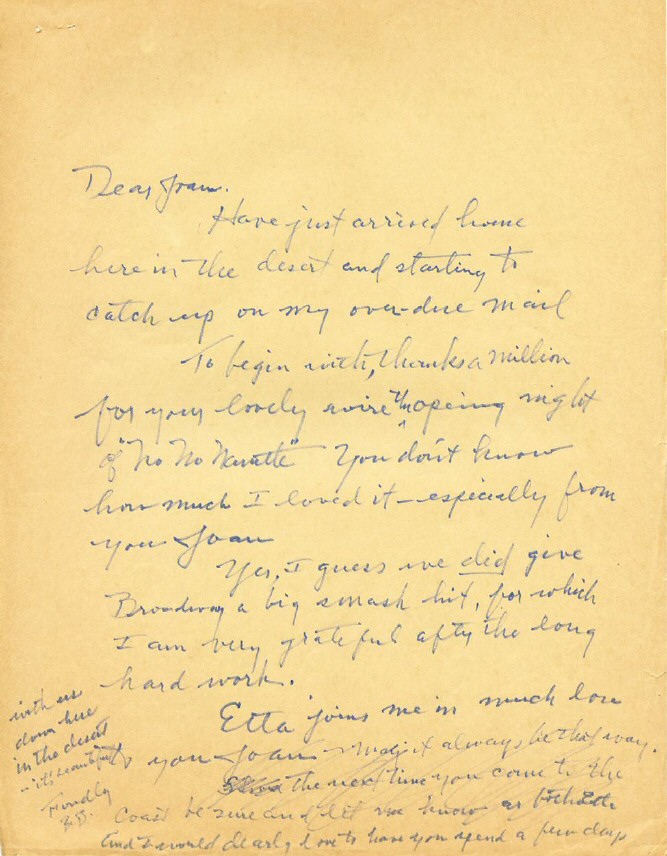 Dear Joan.
Have just arrived home
here in the desert and starting to
catch up on my over-due mail
To begin with, thanks a million
for your lovely wire the opeing night
of "No No Nanette" You don't know
how much I loved it – especially from
you Joan
Yes, I guess we did give
Broadway a big smash hit, for which
I am very grateful after the long
hard work.
Etta joins me in much love
to you Joan – May it always be this way.
the next time you come to the
Coast be sure and let me know as both Etta
and I would dearly love to have you spend a few days
with us
down here
in the desert
– it's beautiful
Fondly
B.B.